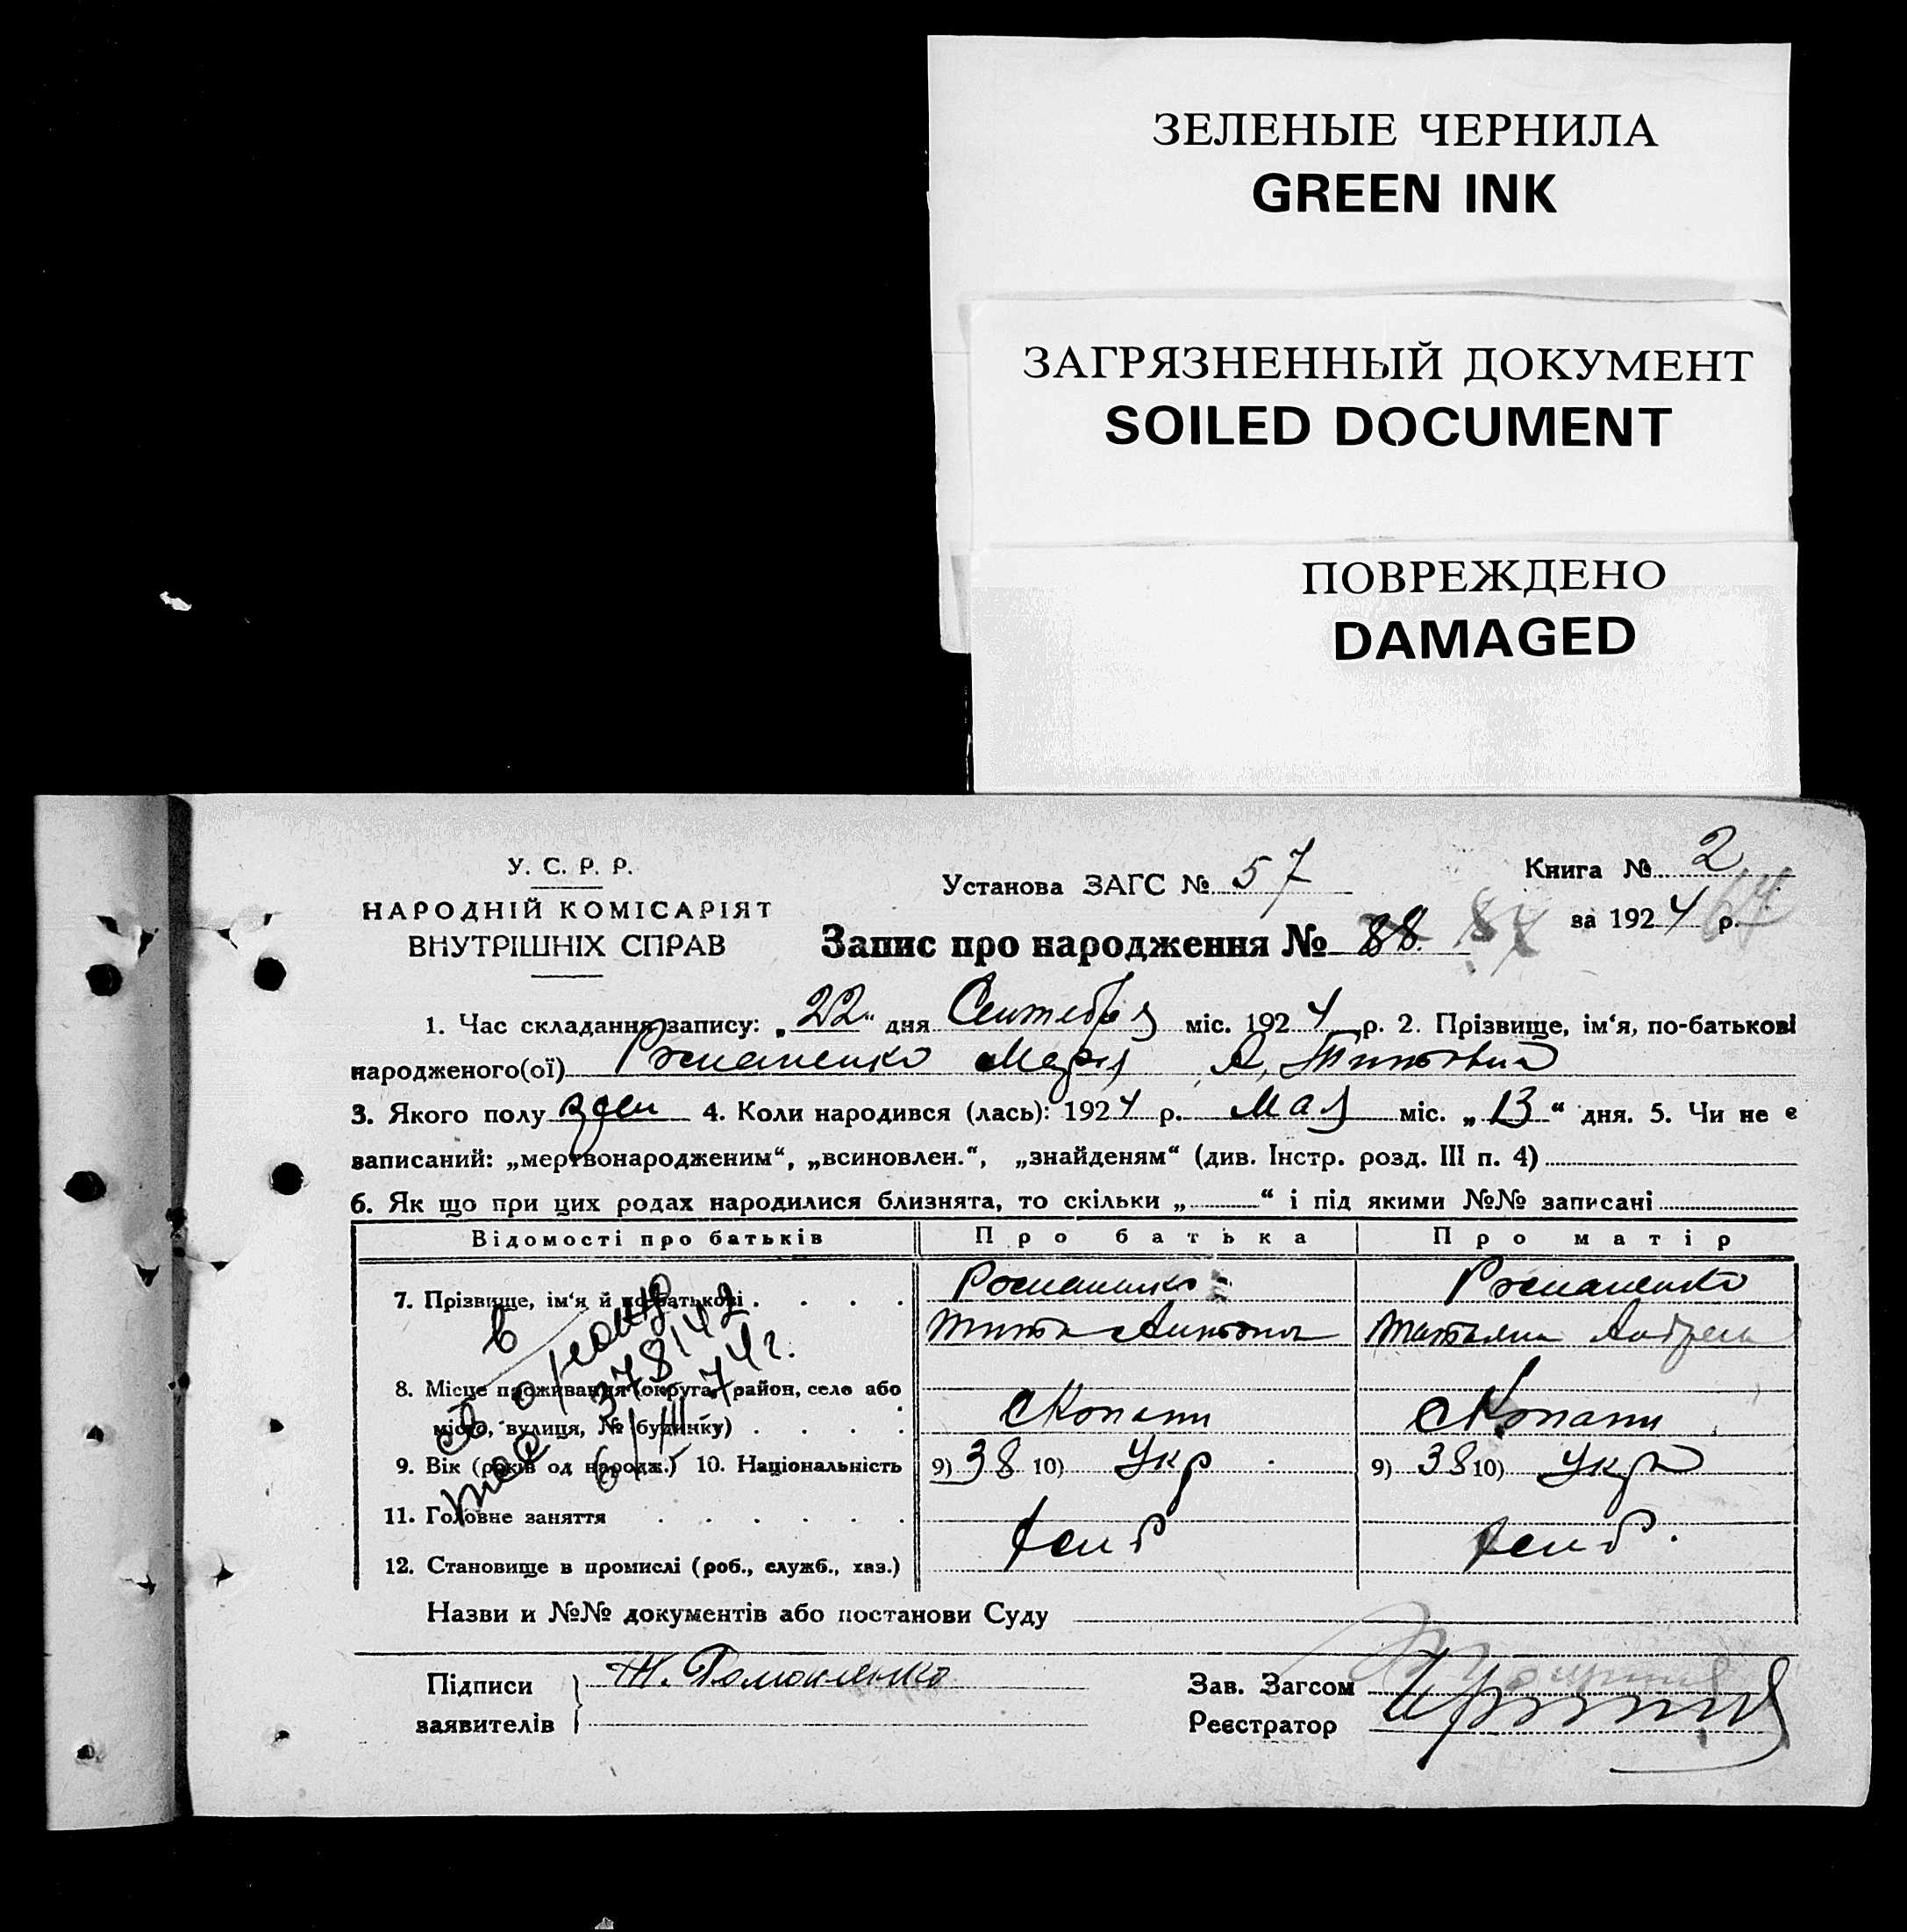 ЗЕЛЕНЫЕ ЧЕРНИЛА
GREEN INK
ЗАГРЯЗНЕННЫЙ ДОКУМЕНТ
SOILED DOCUMENT
ПОВРЕЖДЕНО
DAMAGED
У. С. Р. Р.
НАРОДНІЙ КОМІСАРІЯТ
ВНУТРІШНІХ СПРАВ
Установа ЗАГС № 57
Книга № 2
за 1924 р.
Запис про народження № 88 84
1. Час складання запису: „22“ дня Сентября міс. 1924 р. 2. Прізвище, ім‘я, по-батькові
народженого(ої) Романенко Мария Титовна
3. Якого полу жен 4. Коли народився (лась): 1924 р. Мая міс. „13“ дня. 5. Чи не є
записаний: „мертвонародженим“, „всиновлен.“, „знайденям“ (див. Інстр. розд. III п. 4)
6. Як що при цих родах народилися близнята, то скільки „ “ і під якими №№ записані
Відомості про батьків Про батька Про матір
7. Прізвище, ім‘я й по-батькові . . . . Романенко Романенко
Тит Антонов Татьяна Андреев
8. Місце проживання (округа, район, село або
місто, вулиця, № будинку) . . . . Копати Копати
9. Вік (років од народж.) 10. Національність 9) 38 10) Укр 9) 38 10) Укр
11. Головне заняття . . . . . .
12. Становище в промислі (роб., служб., хаз.)
378142
6/III 74 г.
Назви и №№ документів або постанови Суду
Підписи Т. Романенко
заявителів
Зав. Загсом
Реєстратор